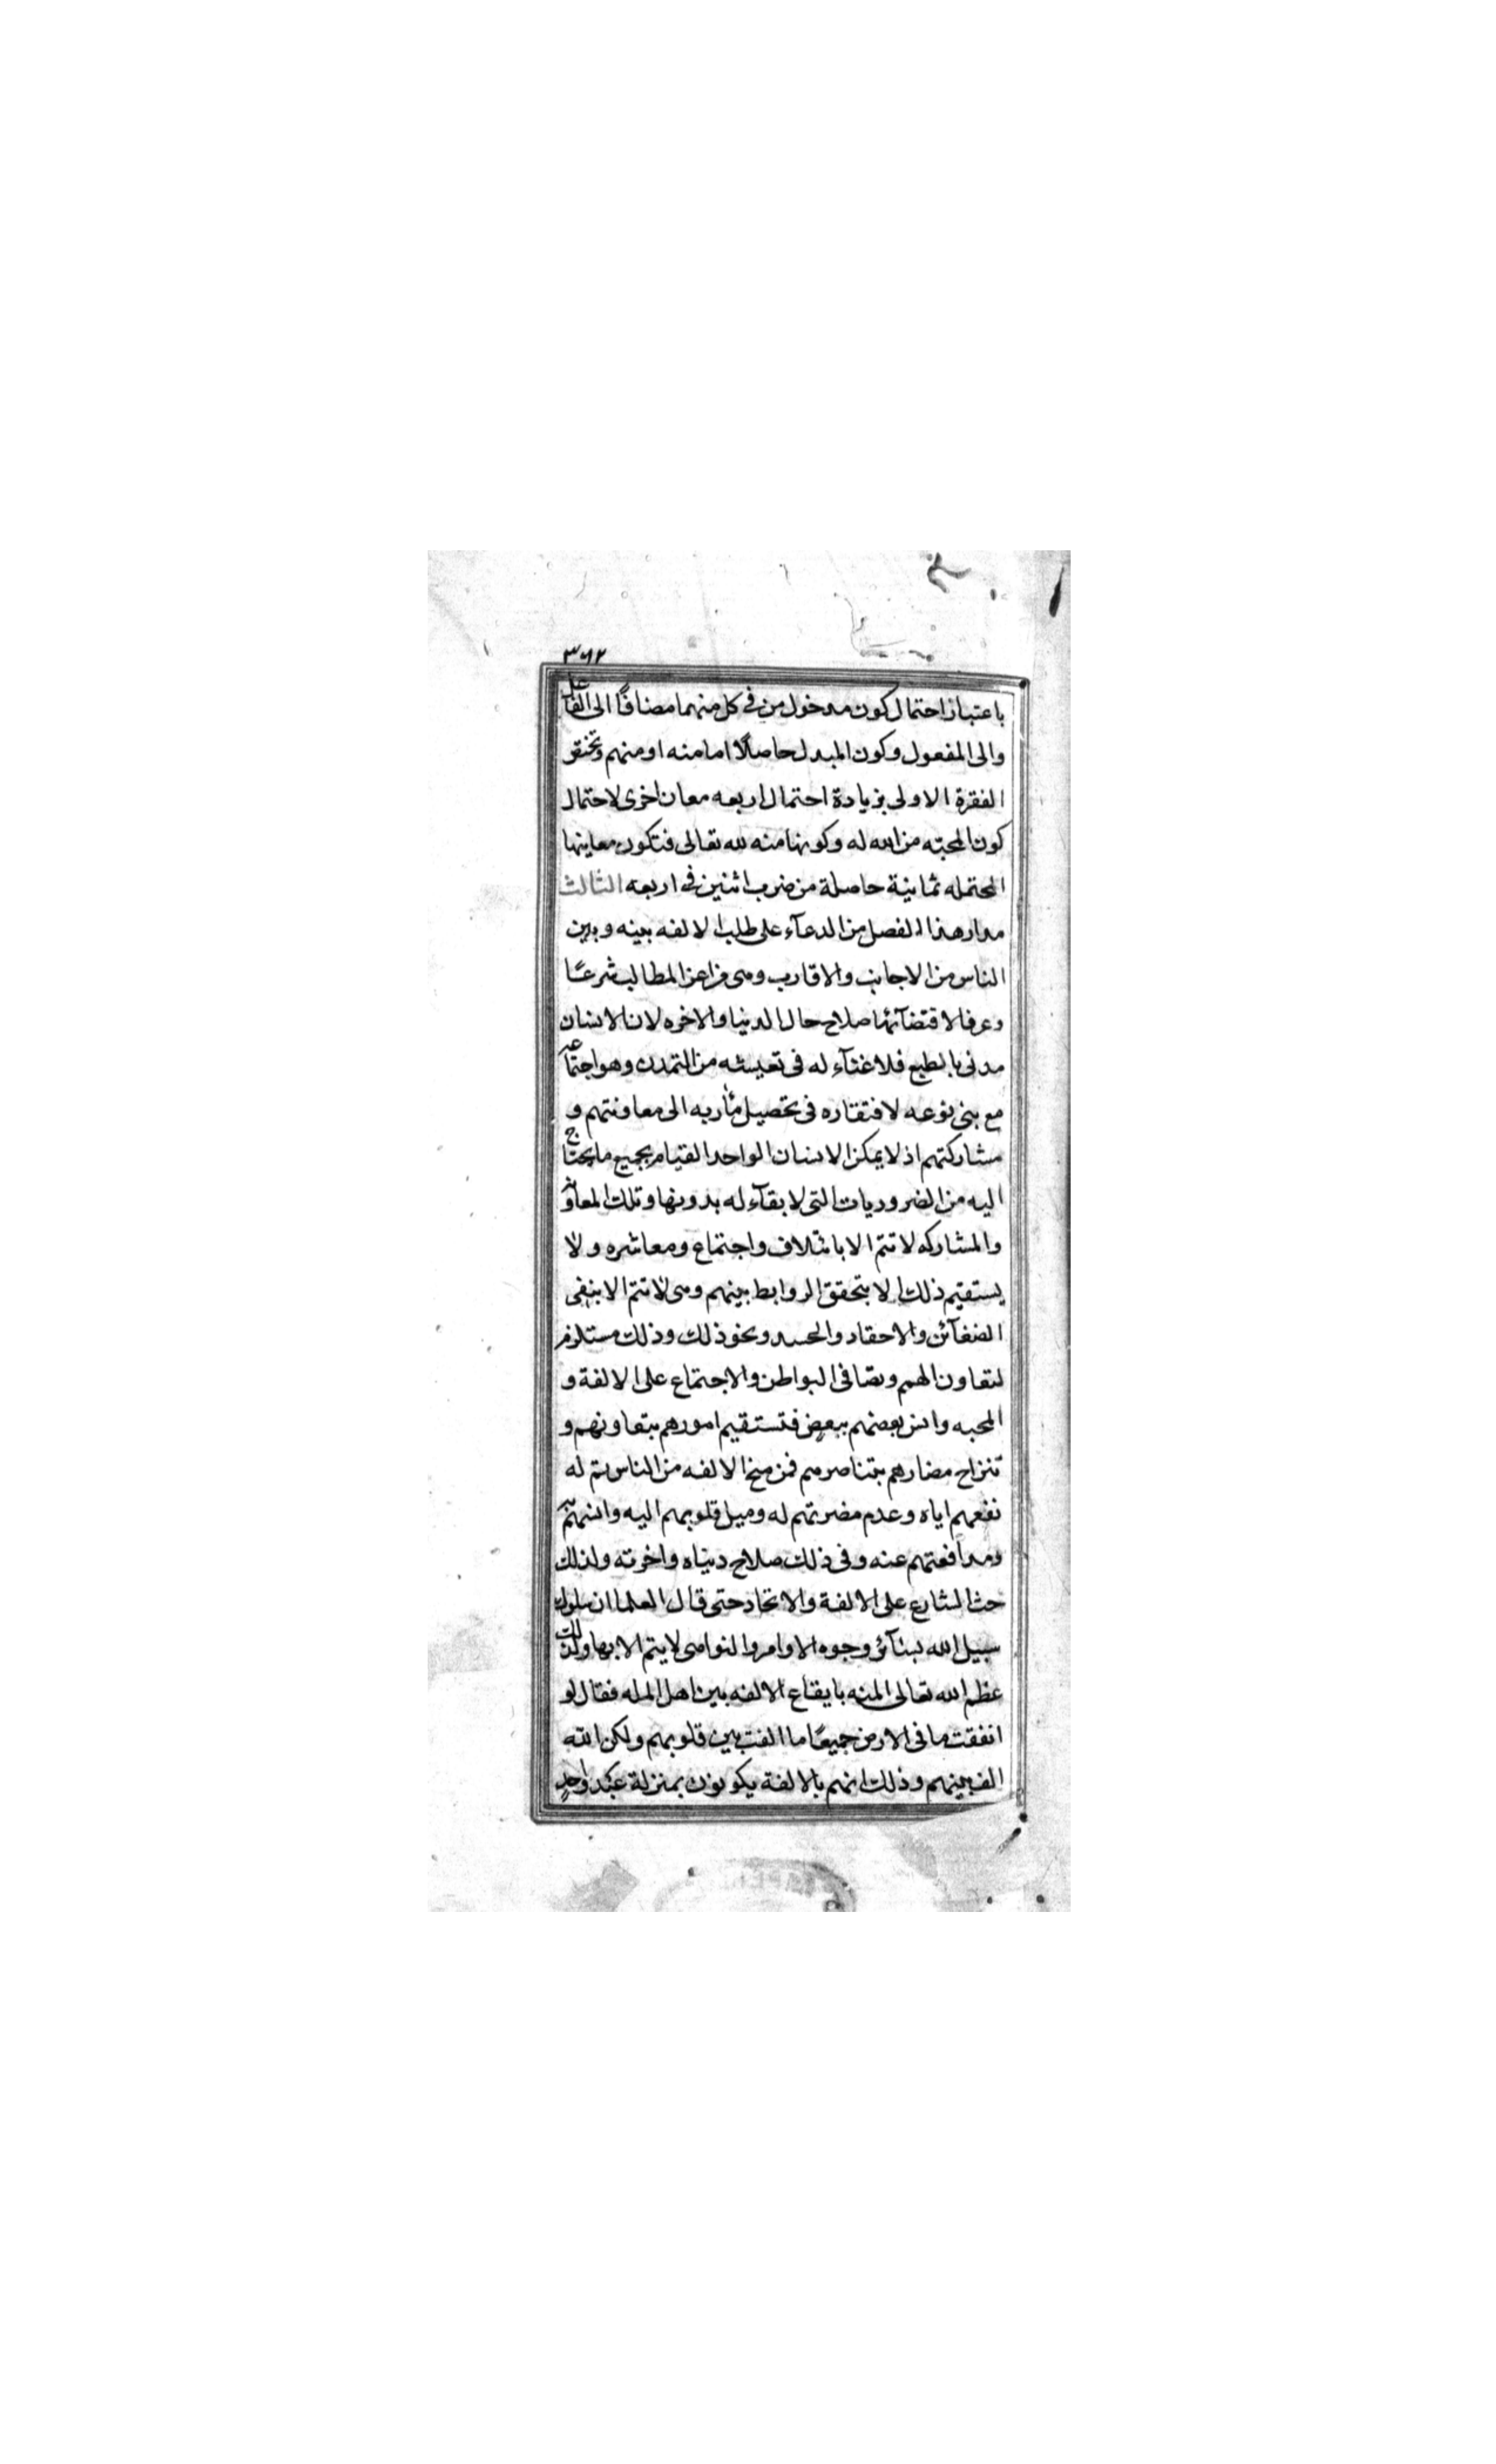 ٣٦٢
باعتبار احتمال كون مدخول من في كل منهما مضافًا الى الفاعل
والى المفعول وكون المبدل حاصلًا اما منه او منهم وتختص
الفقرة الاولى بزيادة احتمال اربعه معان اخرى لاحتمال
كون المحبته من الله له وكونها منه لله تعالى فتكون معاينها
المحتمله ثمانية حاصلة من ضرب اثنين في اربعه الثالث
مدار هذا الفصل من الدعآء على طلب الالفه بينه وبين
الناس من الاجانب والاقارب وهى من اعز المطالب شرعًا
وعرفا لاقتضآئها صلاح حال الدنيا والاخره لان الانسان
مدنى بالطبع فلا غنآء له فى تعيشه من التمدن وهو اجتماعه
مع بنى نوعه لافتقاره فى تحصيل مآربه الى معاونتهم و
مشاركتهم اذ لا يمكن الانسان الواحد القيام بجميع ما يحتاج
اليه من الضروريات التى لا بقآء له بدونها وتلك المعاونة
والمشاركه لا تتم الا بائتلاف واجتماع ومعاشره ولا
يستقيم ذلك الا بتحقق الروابط بينهم وهى لا تتم الا بنفى
الضغآئن والاحقاد والحسد ونحو ذلك وذلك مستلزم
لتعاون الهمم وتصافى البواطن والاجتماع على الالفة و
المحبه وانس بعضهم ببعض فتستقيم امورهم بتعاونهم و
تنزاح مضارهم بتناصرهم فمن منح الالفه من الناس تم له
نفعهم اياه وعدم مضرتهم له وميل قلوبهم اليه وانسهم به
ومدافعتهم عنه وفى ذلك صلاح دنياه واخرته ولذلك
حث الشارع على الالفة والاتحاد حتى قال العلما ان سلوك
سبيل الله بسآئر وجوه الاوامر والنواهى لا يتم الا بها ولذلك
عظم الله تعالى المنه بايقاع الالفه بين اهل المله فقال لو
انفقت ما فى الارض جميعًا ما الفت بين قلوبهم ولكن الله
الف بينهم وذلك انهم بالالفة يكونون بمنزلة عبد واحدٍ